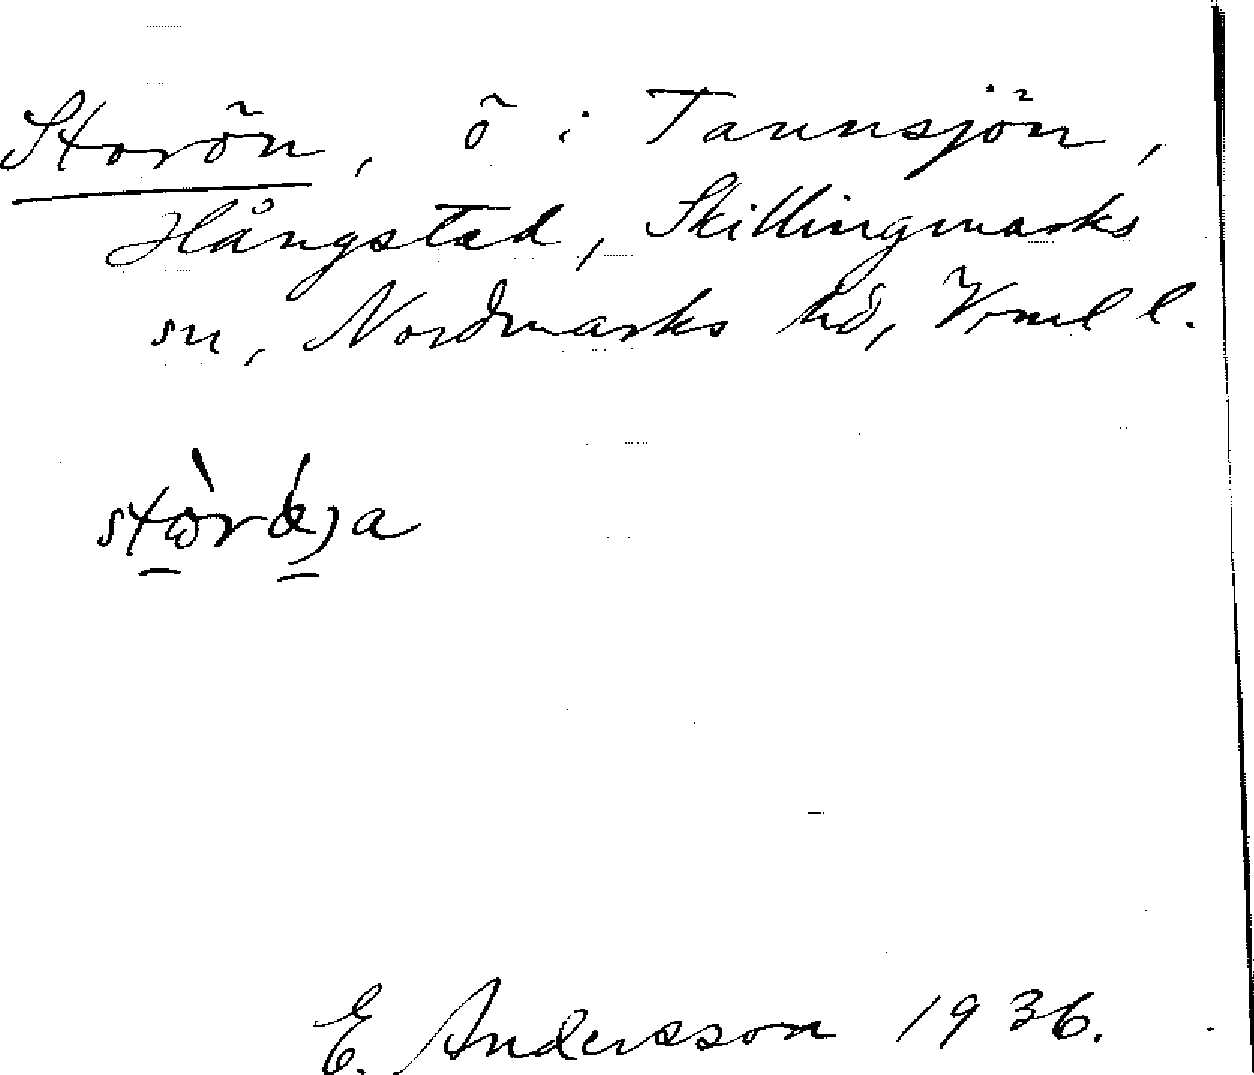 Storön, ö i Tannsjön,
Hångstad, Skillingmarks
sn, Nordmarks hd, Vrml l.
E. Andersson 1936.